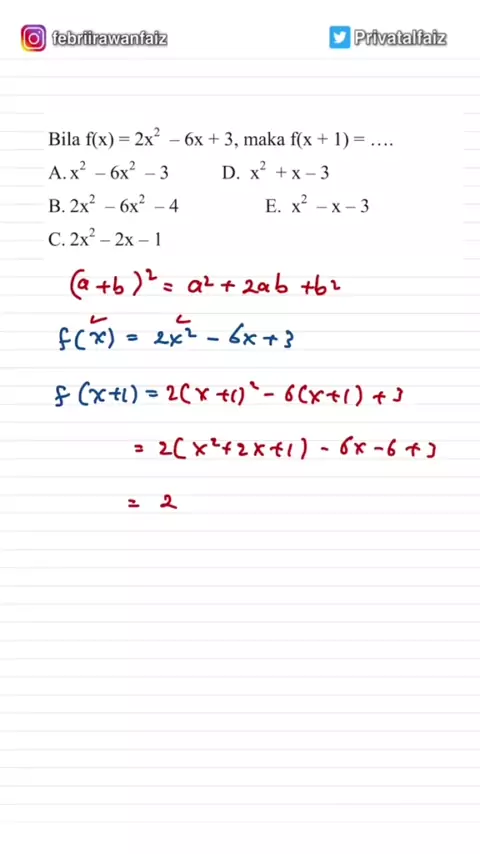 febriirawanfaiz Privatalfaiz
Bila f(x) = 2x² – 6x + 3, maka f(x + 1) = ….
A. x² – 6x² – 3 D. x² + x – 3
B. 2x² – 6x² – 4 E. x² – x – 3
C. 2x² – 2x – 1
(a + b)² = a² + 2ab + b²
f(x) = 2x² – 6x + 3
f(x+1) = 2(x+1)² – 6(x+1) + 3
= 2(x² + 2x + 1) – 6x – 6 + 3
= 2